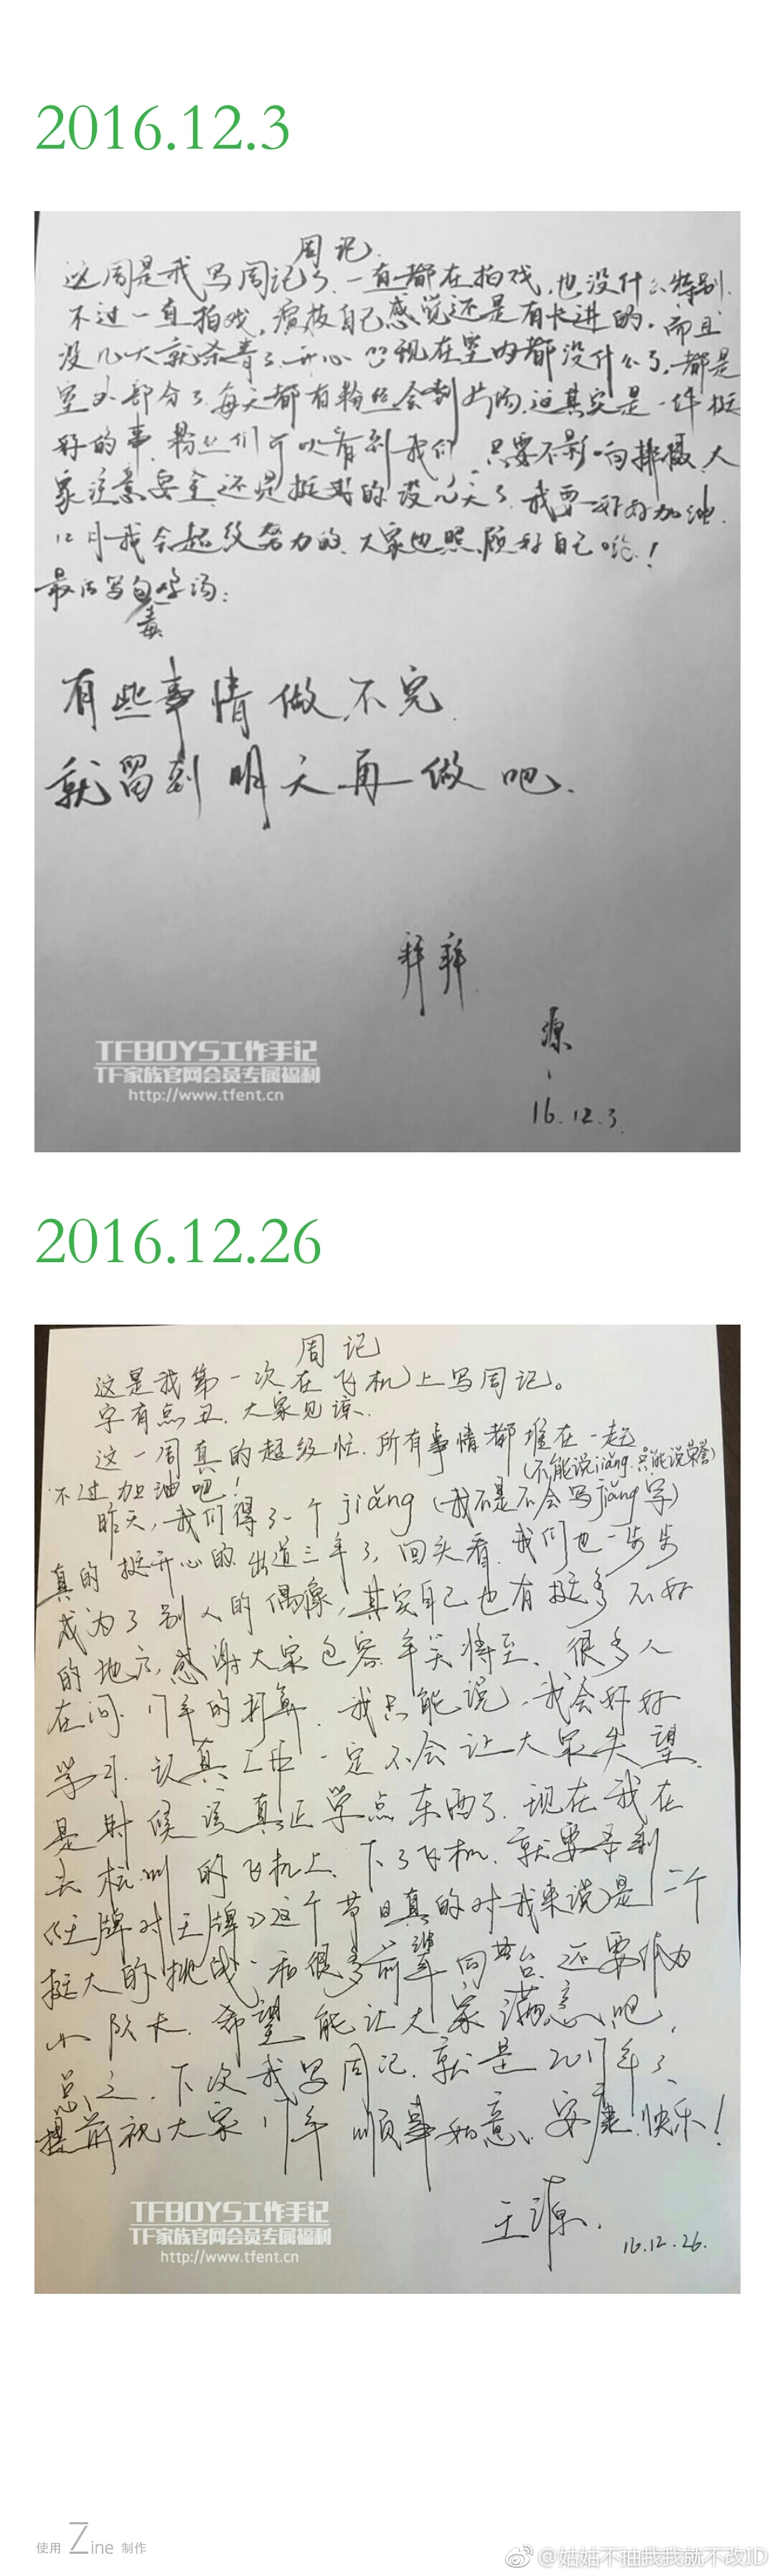 2016.12.3
周记
这周是我写周记了.一直都在拍戏,也没什么特别.
不过一直拍戏,演技自己感觉还是有长进的.而且
没几天就杀青了.开心 现在室内都没什么了,都是
室外部分了.每天都有粉丝会到片场,这其实是一件挺
好的事,粉丝们可以看到我们,只要不影响拍摄,大
家注意安全,还是挺好的.没几天了.我要好好加油.
12月我会超级努力的,大家也照顾好自己哟!
最后写句毒鸡汤:
有些事情做不完.
就留到明天再做吧.
拜拜
源
16.12.3.
TFBOYS工作手记
TF家族官网会员专属福利
http://www.tfent.cn
2016.12.26
周记
这是我第一次在飞机上写周记。
字有点丑.大家见谅.
这一周真的超级忙.所有事情都堆在一起
不过加油吧!
(不能说jiǎng.只能说荣誉)
昨天,我们得了一个jiǎng(我不是不会写jiǎng字)
真的挺开心的.出道三年了,回头看.我们也一步步
成为了别人的偶像,其实自己也有挺多不好
的地方,感谢大家包容.年关将至、很多人
在问.17年的打算.我只能说,我会好好
学习.认真工作.一定不会让大家失望.
是时候该真正学点东西了.现在我在
去杭州的飞机上.下了飞机.就要录制
《王牌对王牌》这个节目真的对我来说是一个
挺大的挑战.和很多前辈同台.还要作为
小队长.希望能让大家满意吧.
总之.下次我写周记.就是2017年了.
提前祝大家17年顺事如意、安康.快乐!
王源.
16.12.26.
TFBOYS工作手记
TF家族官网会员专属福利
http://www.tfent.cn
使用 Zine 制作
@姑姑不抽我我就不改ID